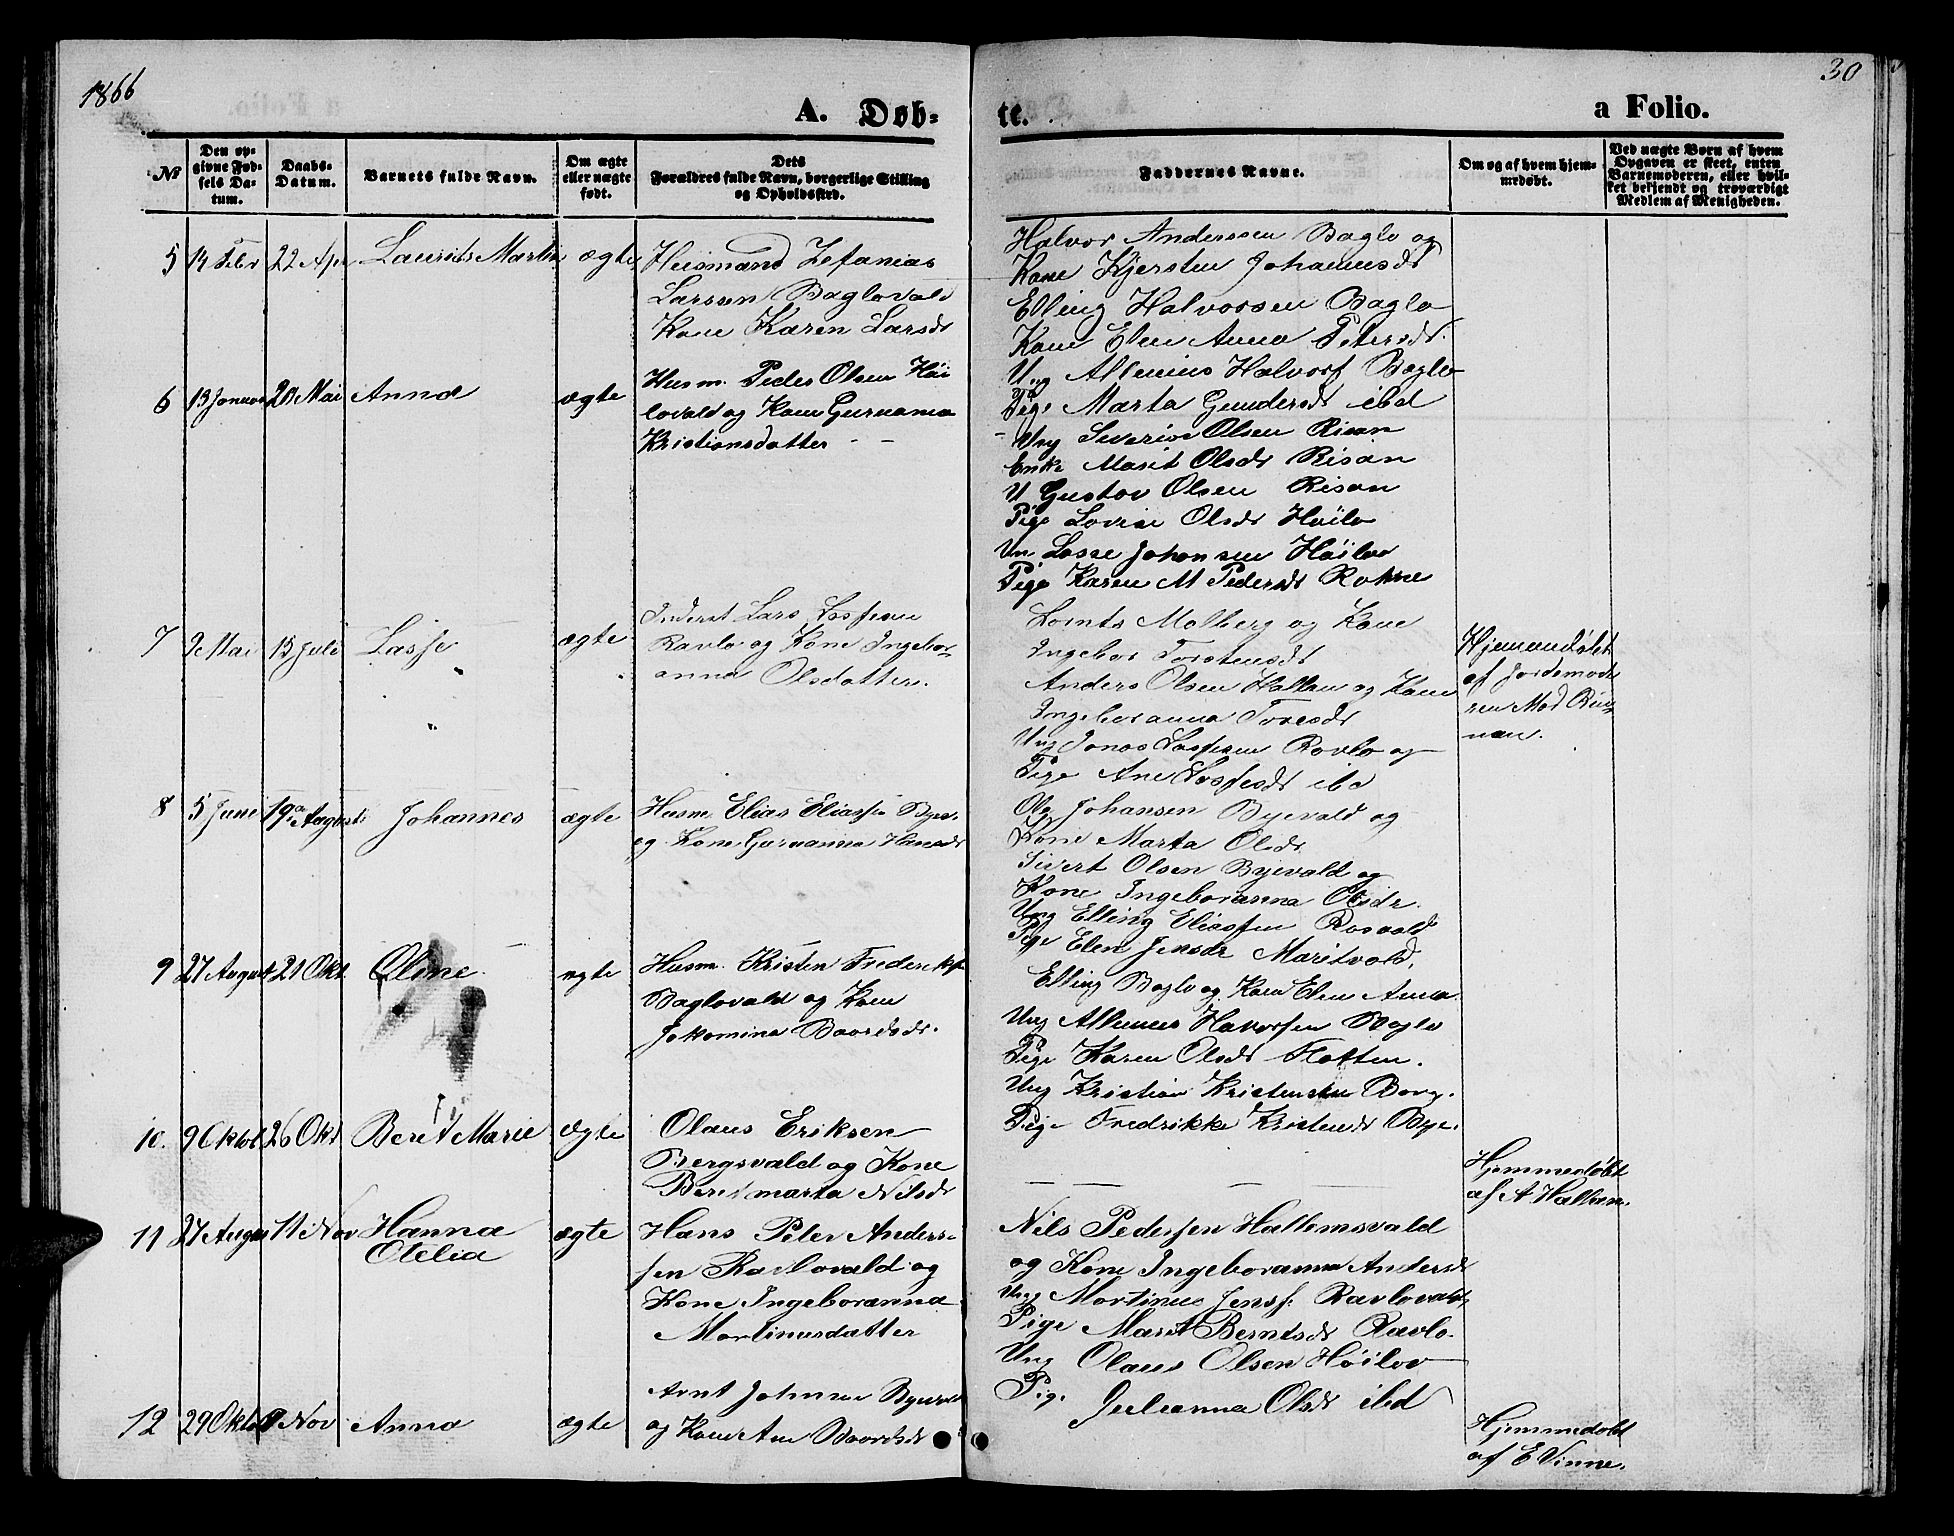 1866
30
A. Døb-
te.
a Folio.
№
Den op-
givne Fød-
sels Da-
tum.
Daabs-
Datum.
Barnets fulde Navn.
Om ægte
eller uægte
født.
Dets
Forældres fulde Navn, borgerlige Stilling
og Opholdssted.
Faddernes Navne.
Om og af hvem hjem-
medøbt.
Ved uægte Børn af hvem
Opgaven er skeet, enten
Barnemoderen, eller hvil-
ket bekjendt og troværdigt
Medlem af Menigheden.
5 14 Febr 22 Apr Laurits Martin ægte
Huusmand Zefanias
Larsen Baglovald
Kone Karen Larsdr
Halvor Anderssen Baglo og
Kone Kjersten Johannesdr
Elling Halvorsen Baglo
Kone Elen Anna Petersdr.
Ung Albenius Halvorss Baglo
Pige Marta Gundersdr ibd
6 13 Januar 20 Mai Anna ægte
Husm. Peder Olsen Høi
lovald og Kone Guruanna
Kristiansdatter
Ung Severin Olsen Risan
Enke Marit Olsdr Risan
U Gustav Olsen Risan
Pige Lovise Olsdr Høilo
Un Lasse Johansen Høilo
Pige Karen M Pedersdr Rokne
7 9 Mai 15 Juli Lasse ægte
Inderst Lars Lassesen
Ravlo og Kone Ingebor-
anna Olsdatter.
Lornts Molberg og Kone
Ingebor Torstensdr
Anders Olsen Hallan og Kone
Ingeboranna Toresdr
Ung Jonas Lassesen Ravlo og
Pige Ane Lassesdr ibd
Hjemmedøbt
af Jordemode
ren Mad Rin-
nan.
8 5 Juni 19de August Johannes ægte
Husm Elias Eliasse Byev.
og Kone Guruanna Hansdr
Ole Johansen Byevald og
Kone Marta Olsdr
Sivert Olsen Byevald og
Kone Ingeboranna Olsdr.
Ung Elling Eliassen Rosvald
Pige Elen Jensdr Maritvald.
9 27 August 21 Okt. Oline ægte
Husm. Kristen Frederiks
Baglovald og Kone
Jakomina Baardsdr.
Elling Baglo og Kone Elen Anna.
Ung Albenius Halvorsen Baglo
Pige Karen Olsdr Flotten.
Ung Kristian Kristensen Borg.
Pige Fredrikke Kristensdr Bye.
10. 9 Oktob 26 Okt Berit Marie ægte
Olaus Eriksen
Bergsvald og Kone
Beretmarta Nilsdr
Hjemmedøbt
af A Hallem.
11 27 August 11 Nov Hanna
Otelia ægte
Hans Peter Anders-
sen Ravlovald og
Kone Ingeboranna
Martinusdatter
Nils Pedersen Hallemsvald
og Kone Ingeboranna Andersdr
Ung Martinus Jenss. Ravlovald
Pige Marit Berntsdr Ravlo.
Ung Olaus Olsen Høilov
Pig. Julianna Olsdr ibd
12 29 Oktob Nov Anna ægte
Arnt Johnsen Byevald
og Kone Ane Baardsdr
Hjemmedøbt
af E Vinne.